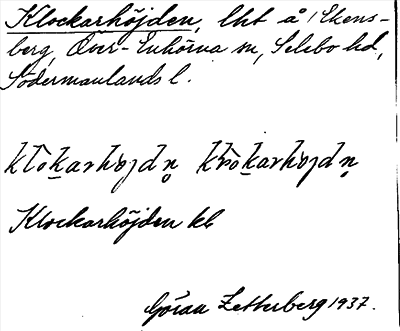 Klockarhöjden, lht å Ekens-
berg, Över-Enhörna sn, Selebo hd,
Södermanlands l.
klôk̲arhöjdn̥ kr̂ok̲arhöjdn̥
Klockarhöjden kb
Göran Zetterberg 1937.